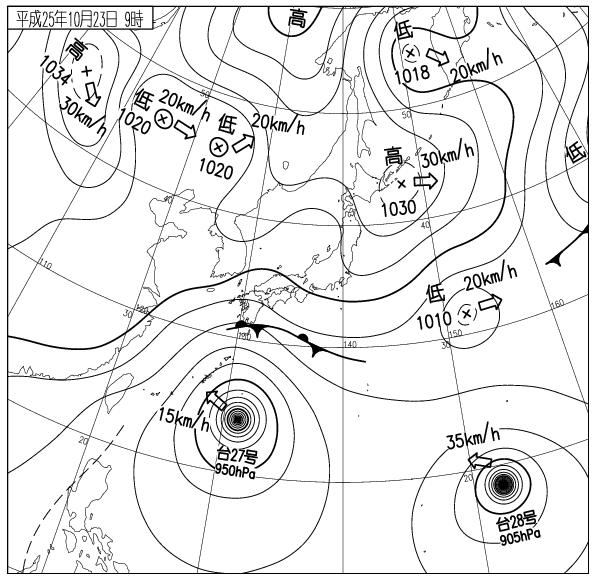 平成25年10月23日 9時
高
高
1034
30km/h
低
1020
20km/h
低
1020
20km/h
低
1018
20km/h
50
50
低
高
30km/h
1030
40
40
110
低
20km/h
1010
160
150
30
30
120
130
140
15km/h
台27号
950hPa
20
35km/h
20
台28号
905hPa